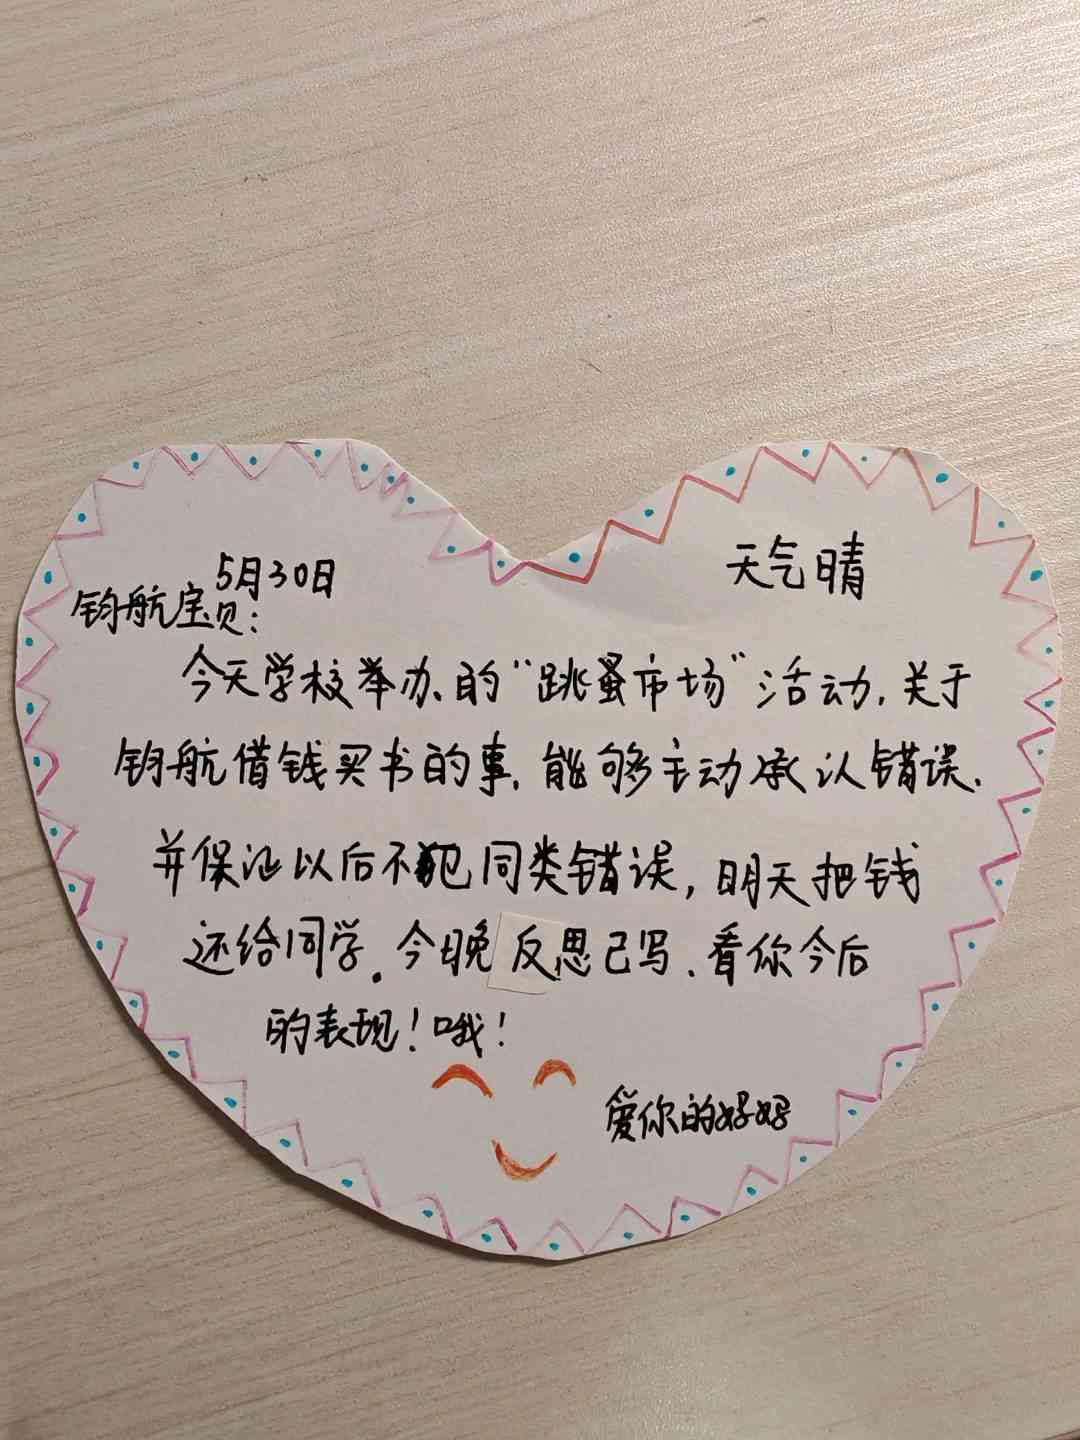 5月30日 天气晴
钧航宝贝：
今天学校举办的“跳蚤市场”活动，关于
钧航借钱买书的事，能够主动承认错误、
并保证以后不犯同类错误，明天把钱
还给同学。今晚反思已写、看你今后
的表现！哦！
爱你的妈妈